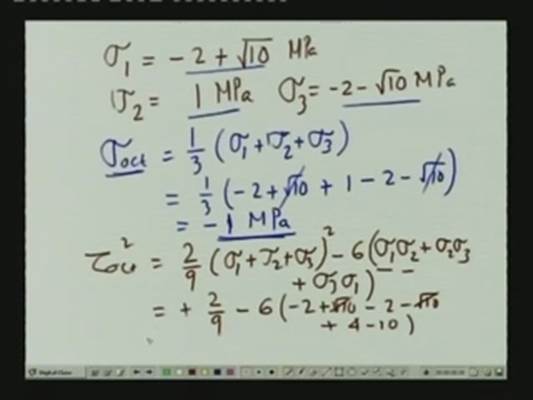 σ₁ = -2 + √10 MPa
σ₂ = 1 MPa σ₃ = -2 - √10 MPa
σoct = 1/3 (σ₁ + σ₂ + σ₃)
= 1/3 (-2 + √10 + 1 - 2 - √10)
= -1 MPa
τoct² = 2/9 (σ₁ + σ₂ + σ₃)² - 6 (σ₁σ₂ + σ₂σ₃
+ σ₃σ₁)
= + 2/9 - 6 (-2 + √10 - 2 - √10
+ 4 - 10)